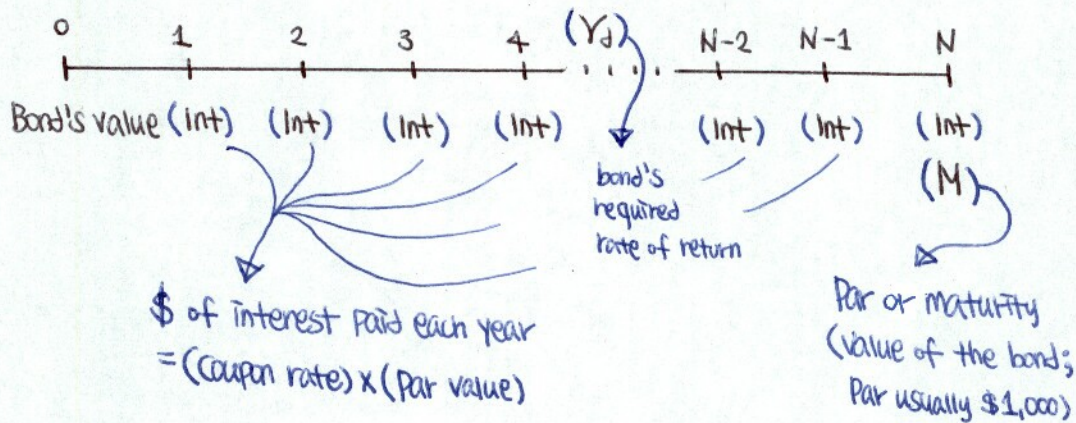 0 1 2 3 4 (rd) N-2 N-1 N
. . . .
Bond's value (Int) (Int) (Int) (Int) (Int) (Int) (Int)
(M)
bond's
required
rate of return
$ of interest paid each year
=(Coupon rate) x (Par value)
Par or maturity
(value of the bond;
Par usually $1,000)